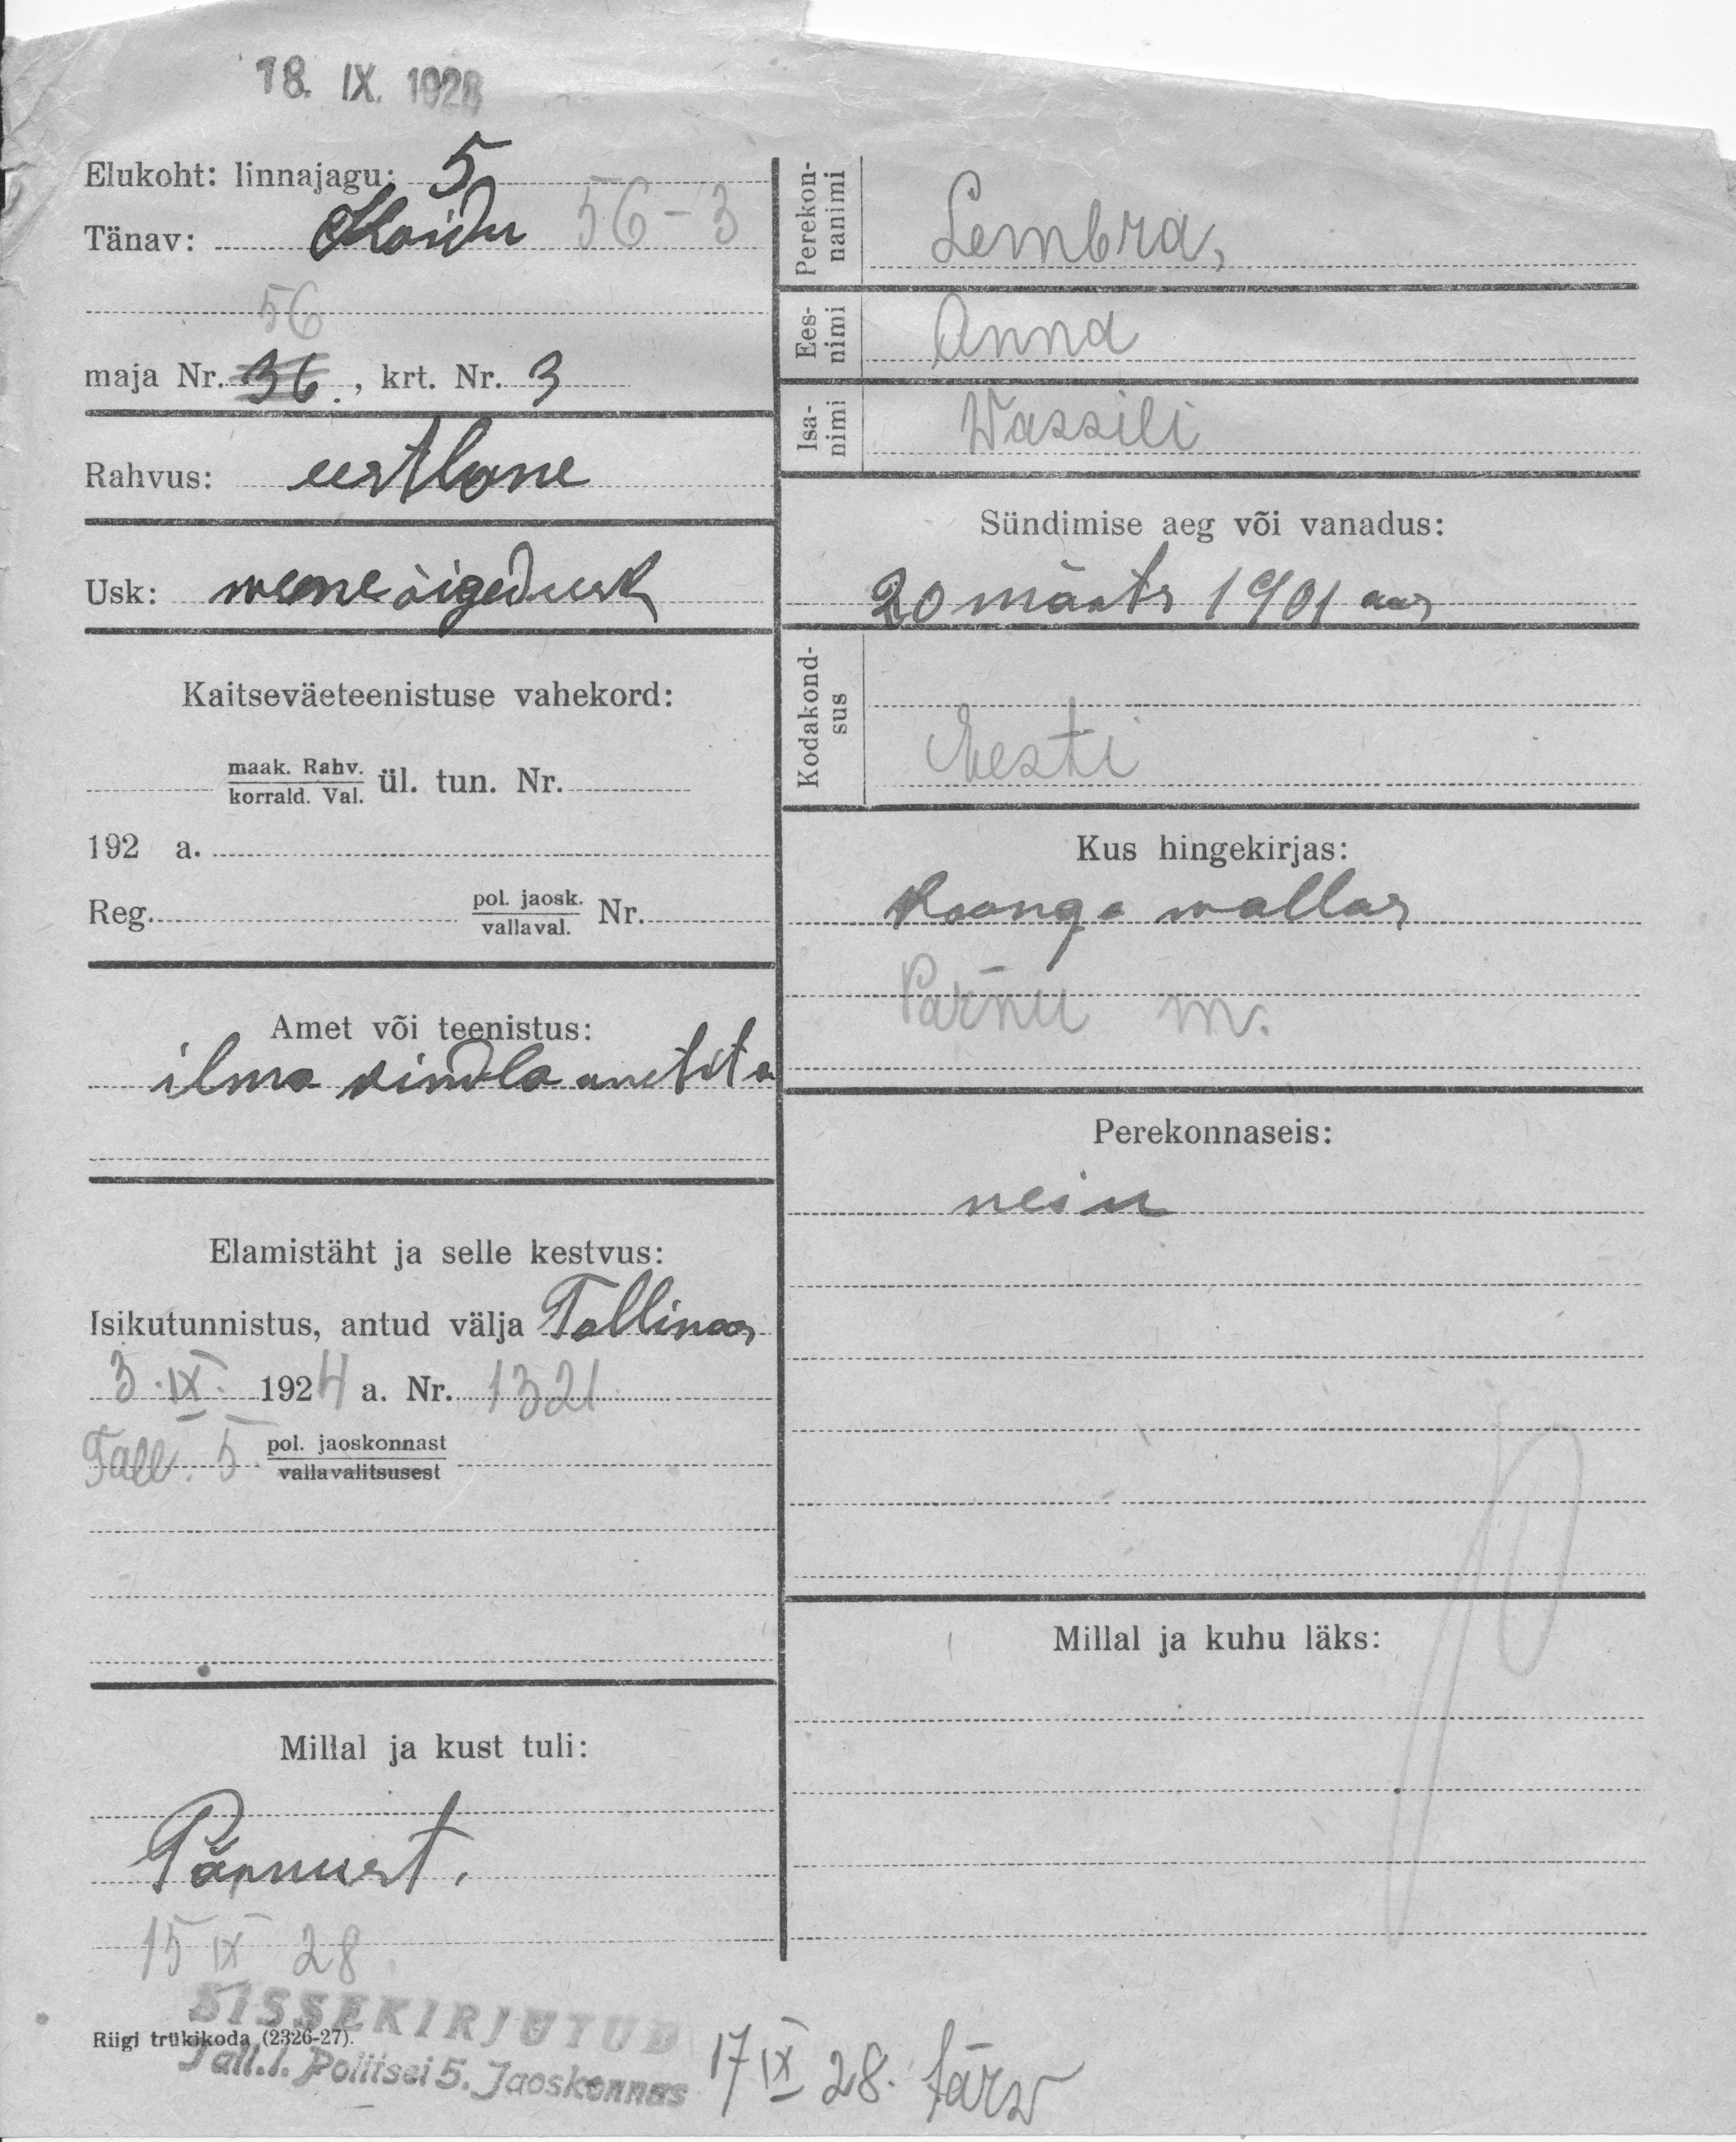 18. IX. 1928
Elukoht: linnajagu: 5
Tänav: Koidu 56-3
56
maja Nr. 36, krt. Nr. 3
Rahvus: eestlane
Usk: weneõigedusk
Kaitseväeteenistuse vahekord:
maak. Rahv.
korrald. Val. ül. tun. Nr.
192 a.
Reg. pol. jaosk.
vallaval. Nr.
Amet või teenistus:
ilma kindla ametita
Elamistäht ja selle kestvus:
Isikutunnistus, antud välja Tallinas
3.IX. 1924 a. Nr. 1321
Tall. 5. pol. jaoskonnast
vallavalitsusest
Millal ja kust tuli:
Pärnust.
15 IX 28.
SISSEKIRJUTUD
Riigi trükikoda (2326-27).
Tall.l. Politsei 5. Jaoskonnas
17 IX 28.
Perekon-
nanimi
Lembra,
Ees-
nimi
Anna
Isa-
nimi
Wassili
Sündimise aeg või vanadus:
20 märts 1901 aas
Kodakond-
sus
Eesti
Kus hingekirjas:
Koonga wallas
Pärnu m.
Perekonnaseis:
neiu
Millal ja kuhu läks: